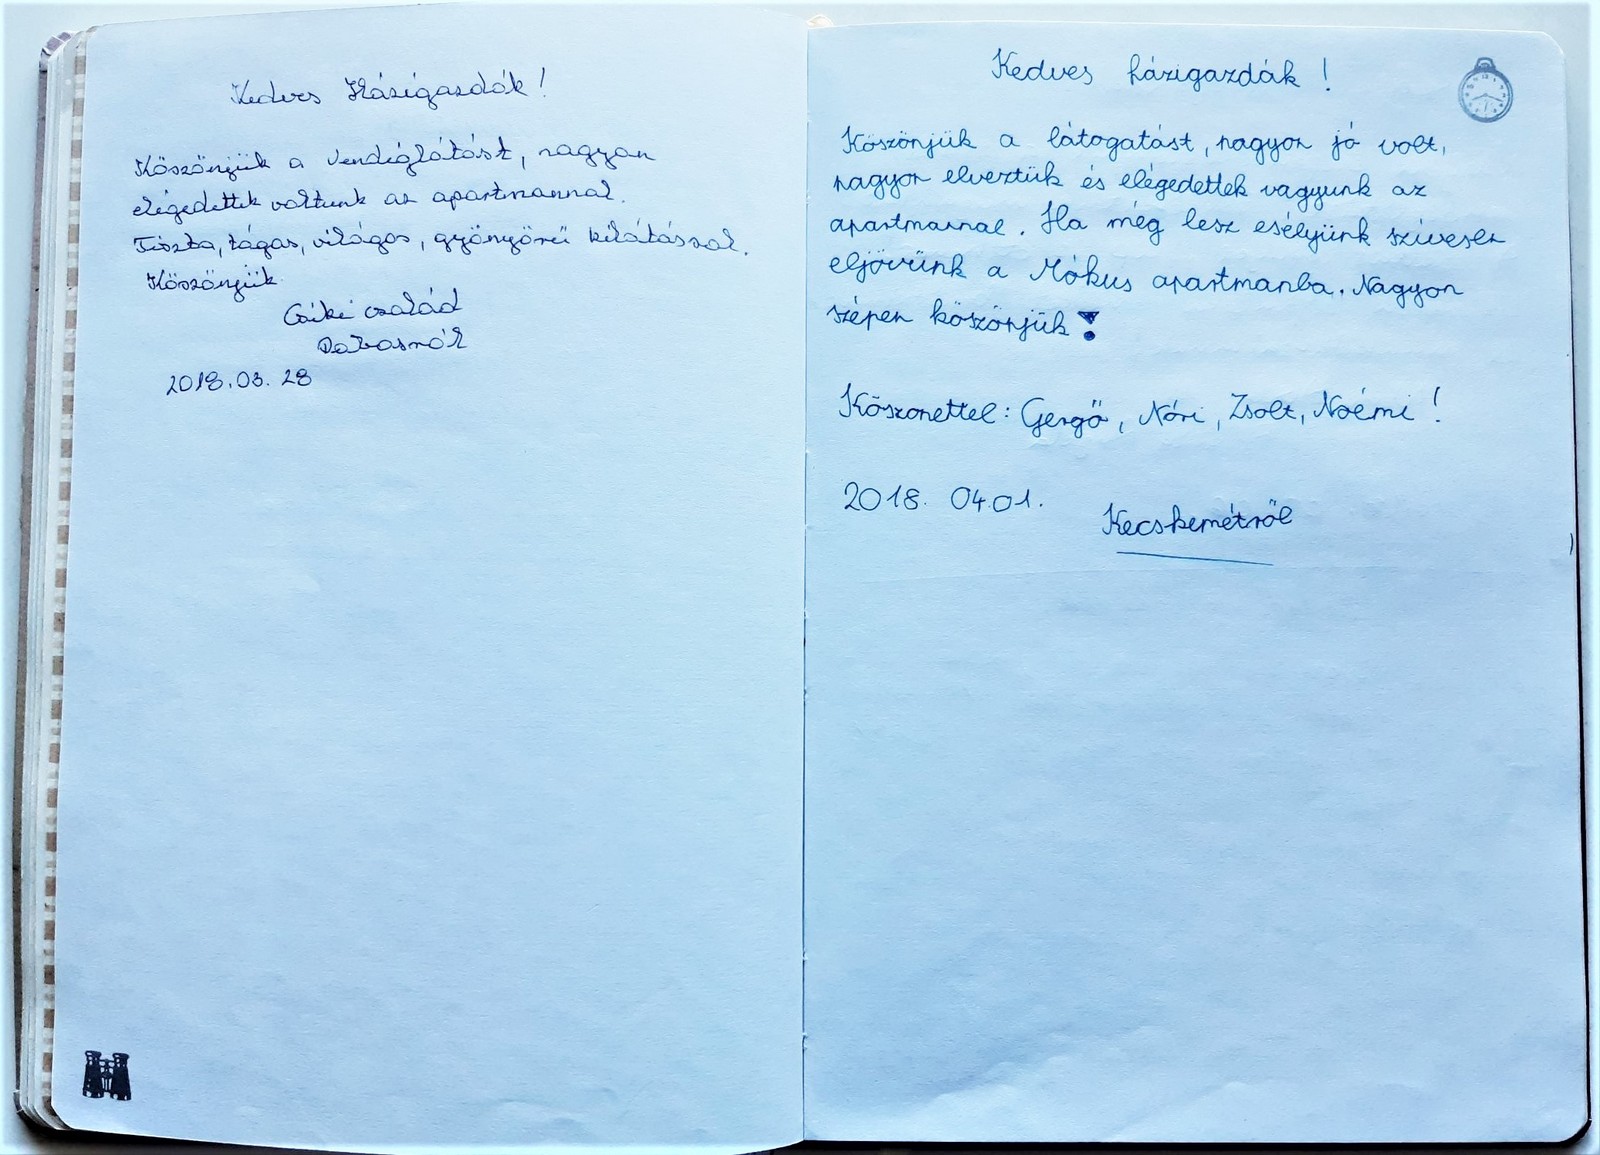 Kedves Házigazdák!
Köszönjük a vendéglátást, nagyon
elégedettek voltunk az apartmannal.
Tiszta, tágas, világos, gyönyörű kilátással.
Köszönjük
Csiki család
2018.03.28
Kedves házigazdák!
Köszönjük a látogatást, nagyon jó volt,
nagyon elveztük és elégedettek vagyunk az
apartmannal. Ha még lesz esélyünk szívesen
eljövünk a Mókus apartmanba. Nagyon
szépen köszönjük!
Köszönettel: Gergő, Nóri, Zsolt, Noémi!
2018. 04.01.
Kecskemétről